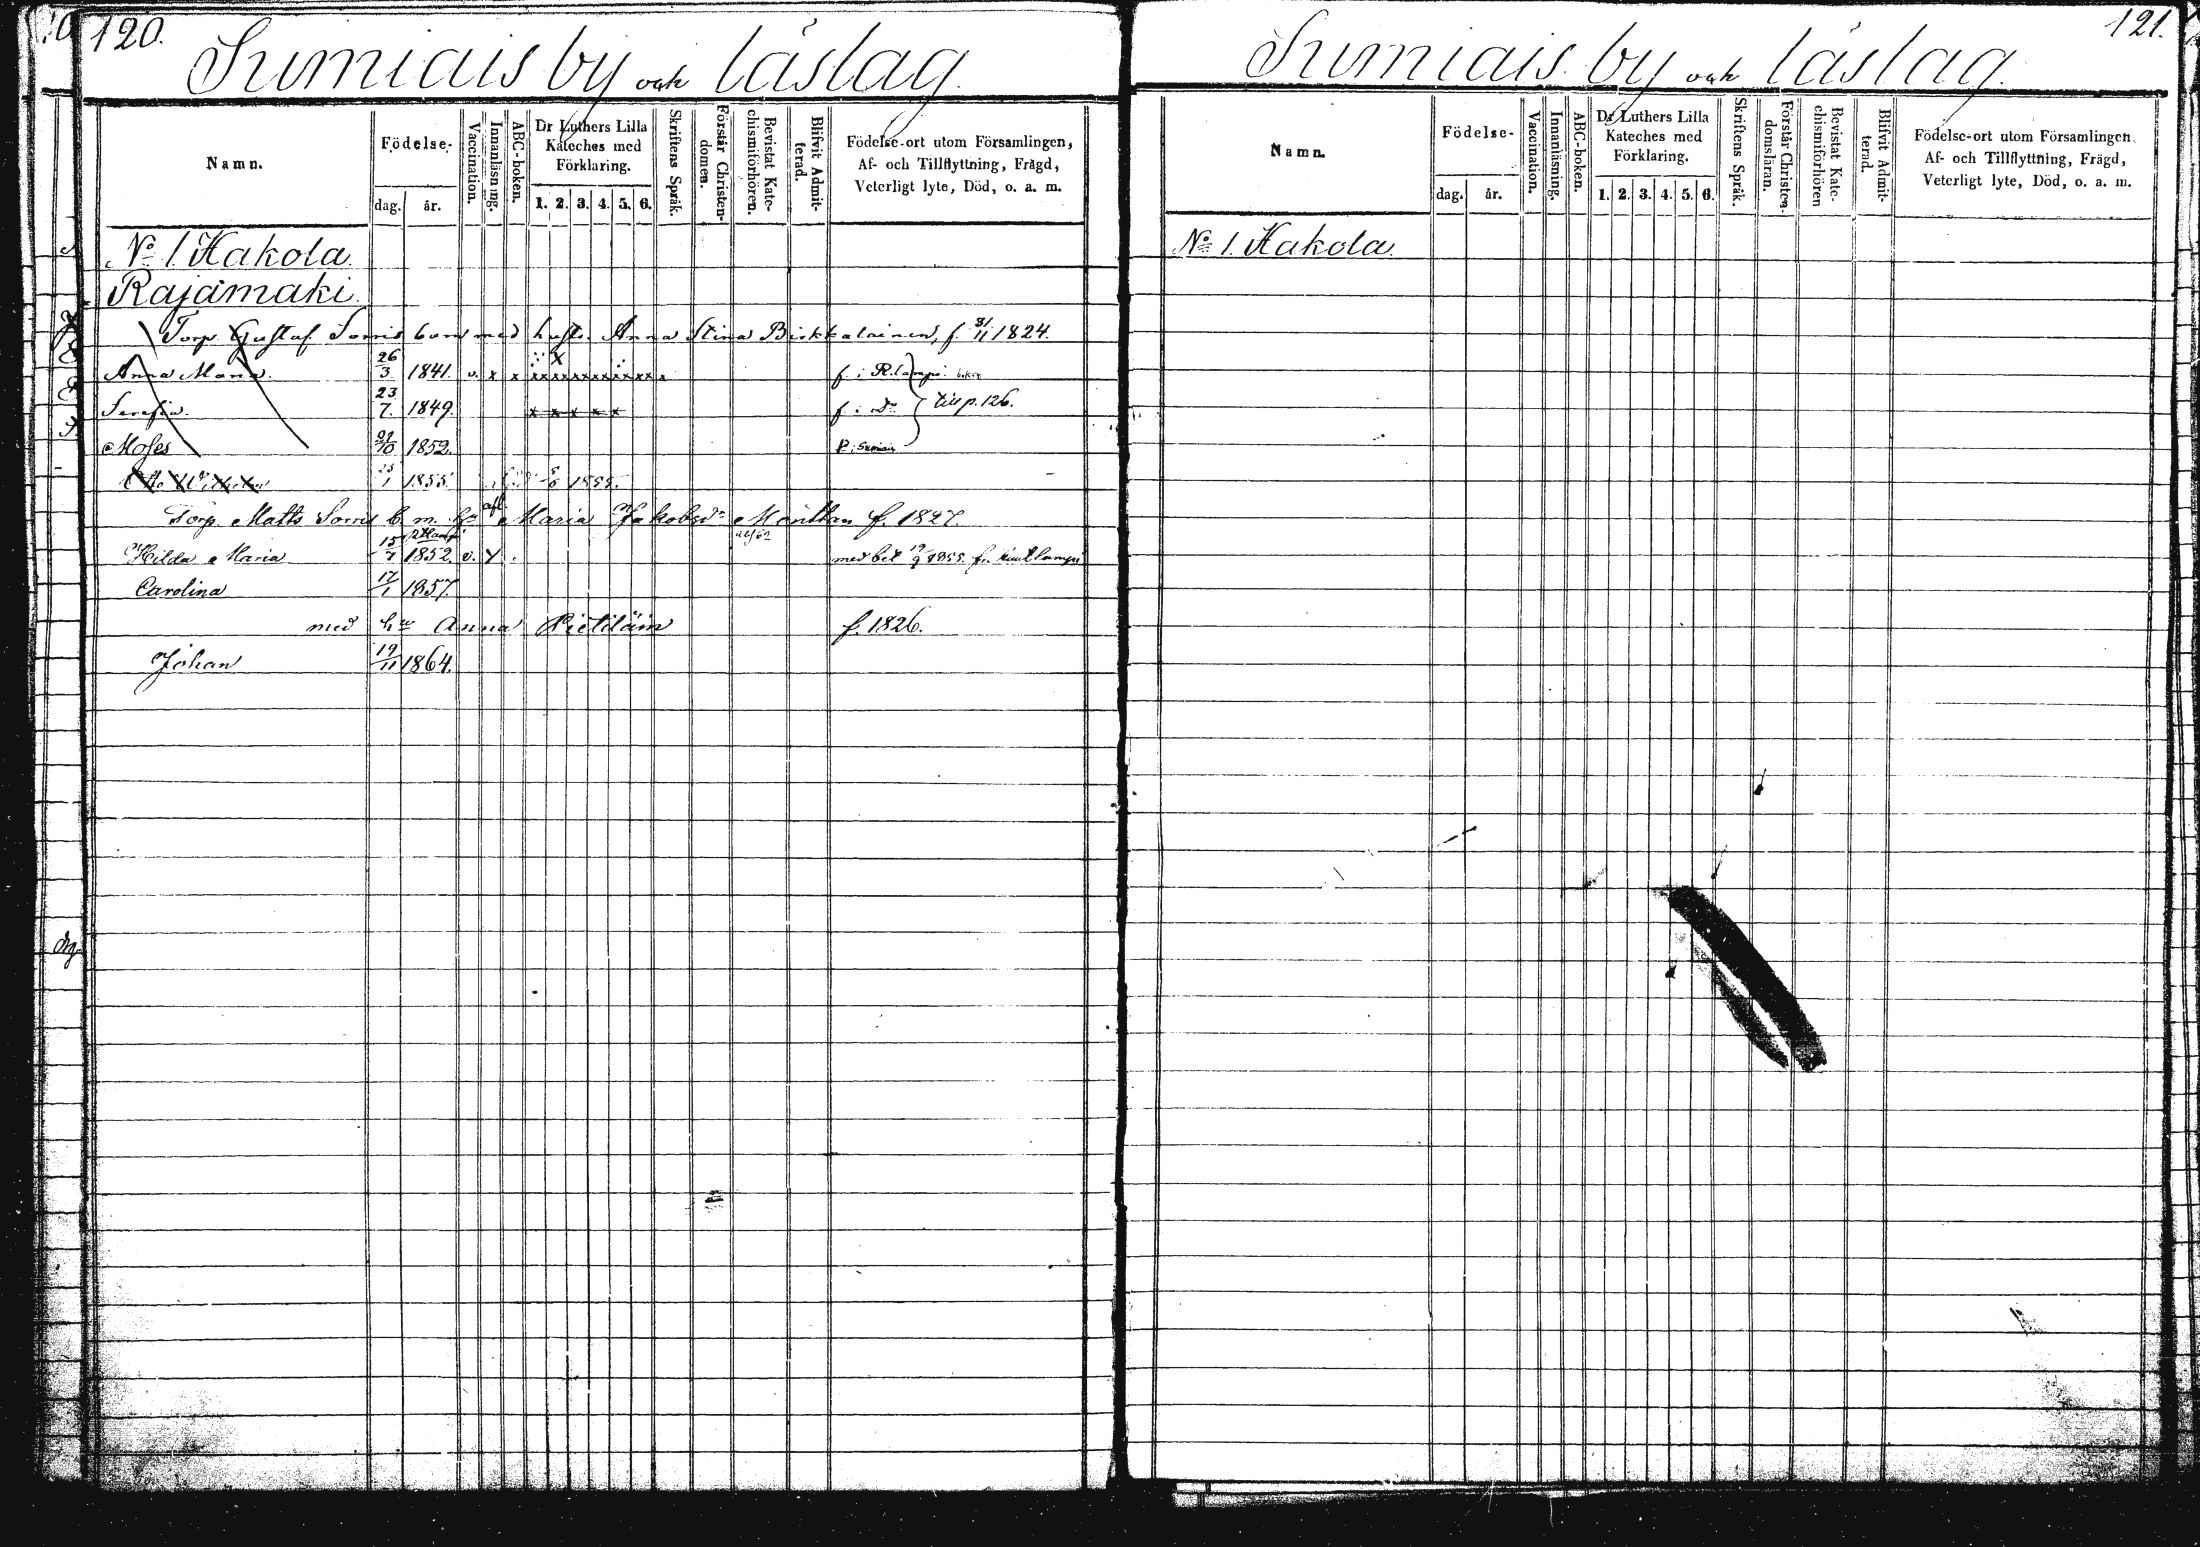 120.
Sumiais by och läslag.
Namn.
Födelse-
dag. år.
Vaccination.
Innanläsning.
ABC-boken.
Dr Luthers Lilla Kateches med Förklaring.
1. 2. 3. 4. 5. 6.
Skriftens Språk.
Förstår Christen-domen.
Bevistat Kate-chismiförhören.
Blifvit Admit-terad.
Födelse-ort utom Församlingen,
Af- och Tillflyttning, Frägd,
Veterligt lyte, Död, o. a. m.
No 1. Hakola.
Rajamäki.
Torp Gustaf Sorris barn med hustr. Anna Stina Birkkalainen, f. 3/11 1824.
Anna Maria. 26/3 1841. v. x x xxxxxxxxxxxx f. i R.lampi
Serafia. 23/7. 1849. x x x x x f. i do till p. 126.
Moses 1852. f. i Sumiais
Otto Wilhelm 1855. 1855.
Torp. Matts Sorris b. m. Maria Jakobsdr f. 1827.
Hilda Maria 15/7 1852. v. y med bet 1855. fr. Rautlampi
Carolina 17/1 1857.
med hu Anna Pietiläin f. 1826.
Johan 19/11 1864.
121.
Sumiais. by och läslag.
Namn.
Födelse-
dag. år.
Vaccination.
Innanläsning.
ABC-boken.
Dr Luthers Lilla Kateches med Förklaring.
1. 2. 3. 4. 5. 6.
Skriftens Språk.
Förstår Christen-domsläran.
Bevistat Kate-chismiförhören
Blifvit Admit-terad.
Födelse-ort utom Församlingen.
Af- och Tillflyttning, Frägd,
Veterligt lyte, Död, o. a. m.
No 1. Hakola.